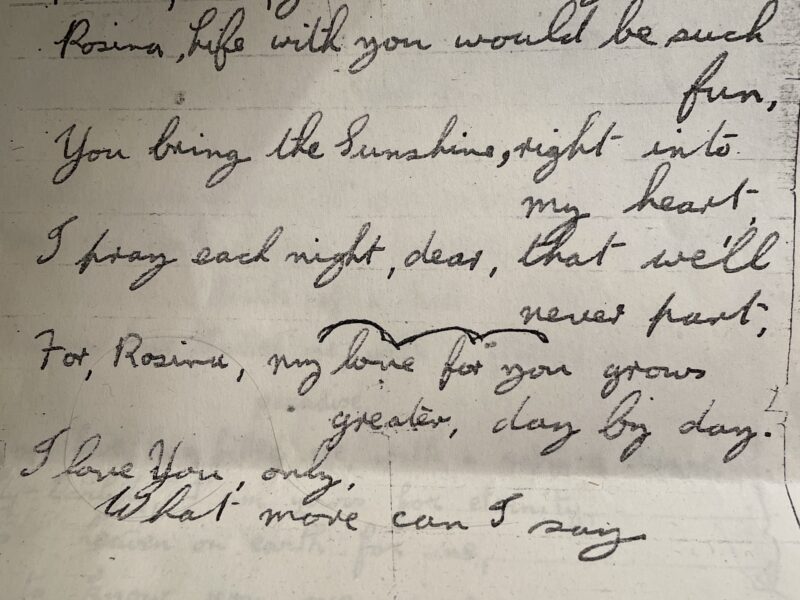 Rosina, Life with you would be such
fun,
You bring the Sunshine, right into
my heart,
I pray each night, dear, that we'll
never part,
For, Rosina, my love for you grows
greater, day by day.
I love You, only,
What more can I say
for eternity
heaven on earth for me,